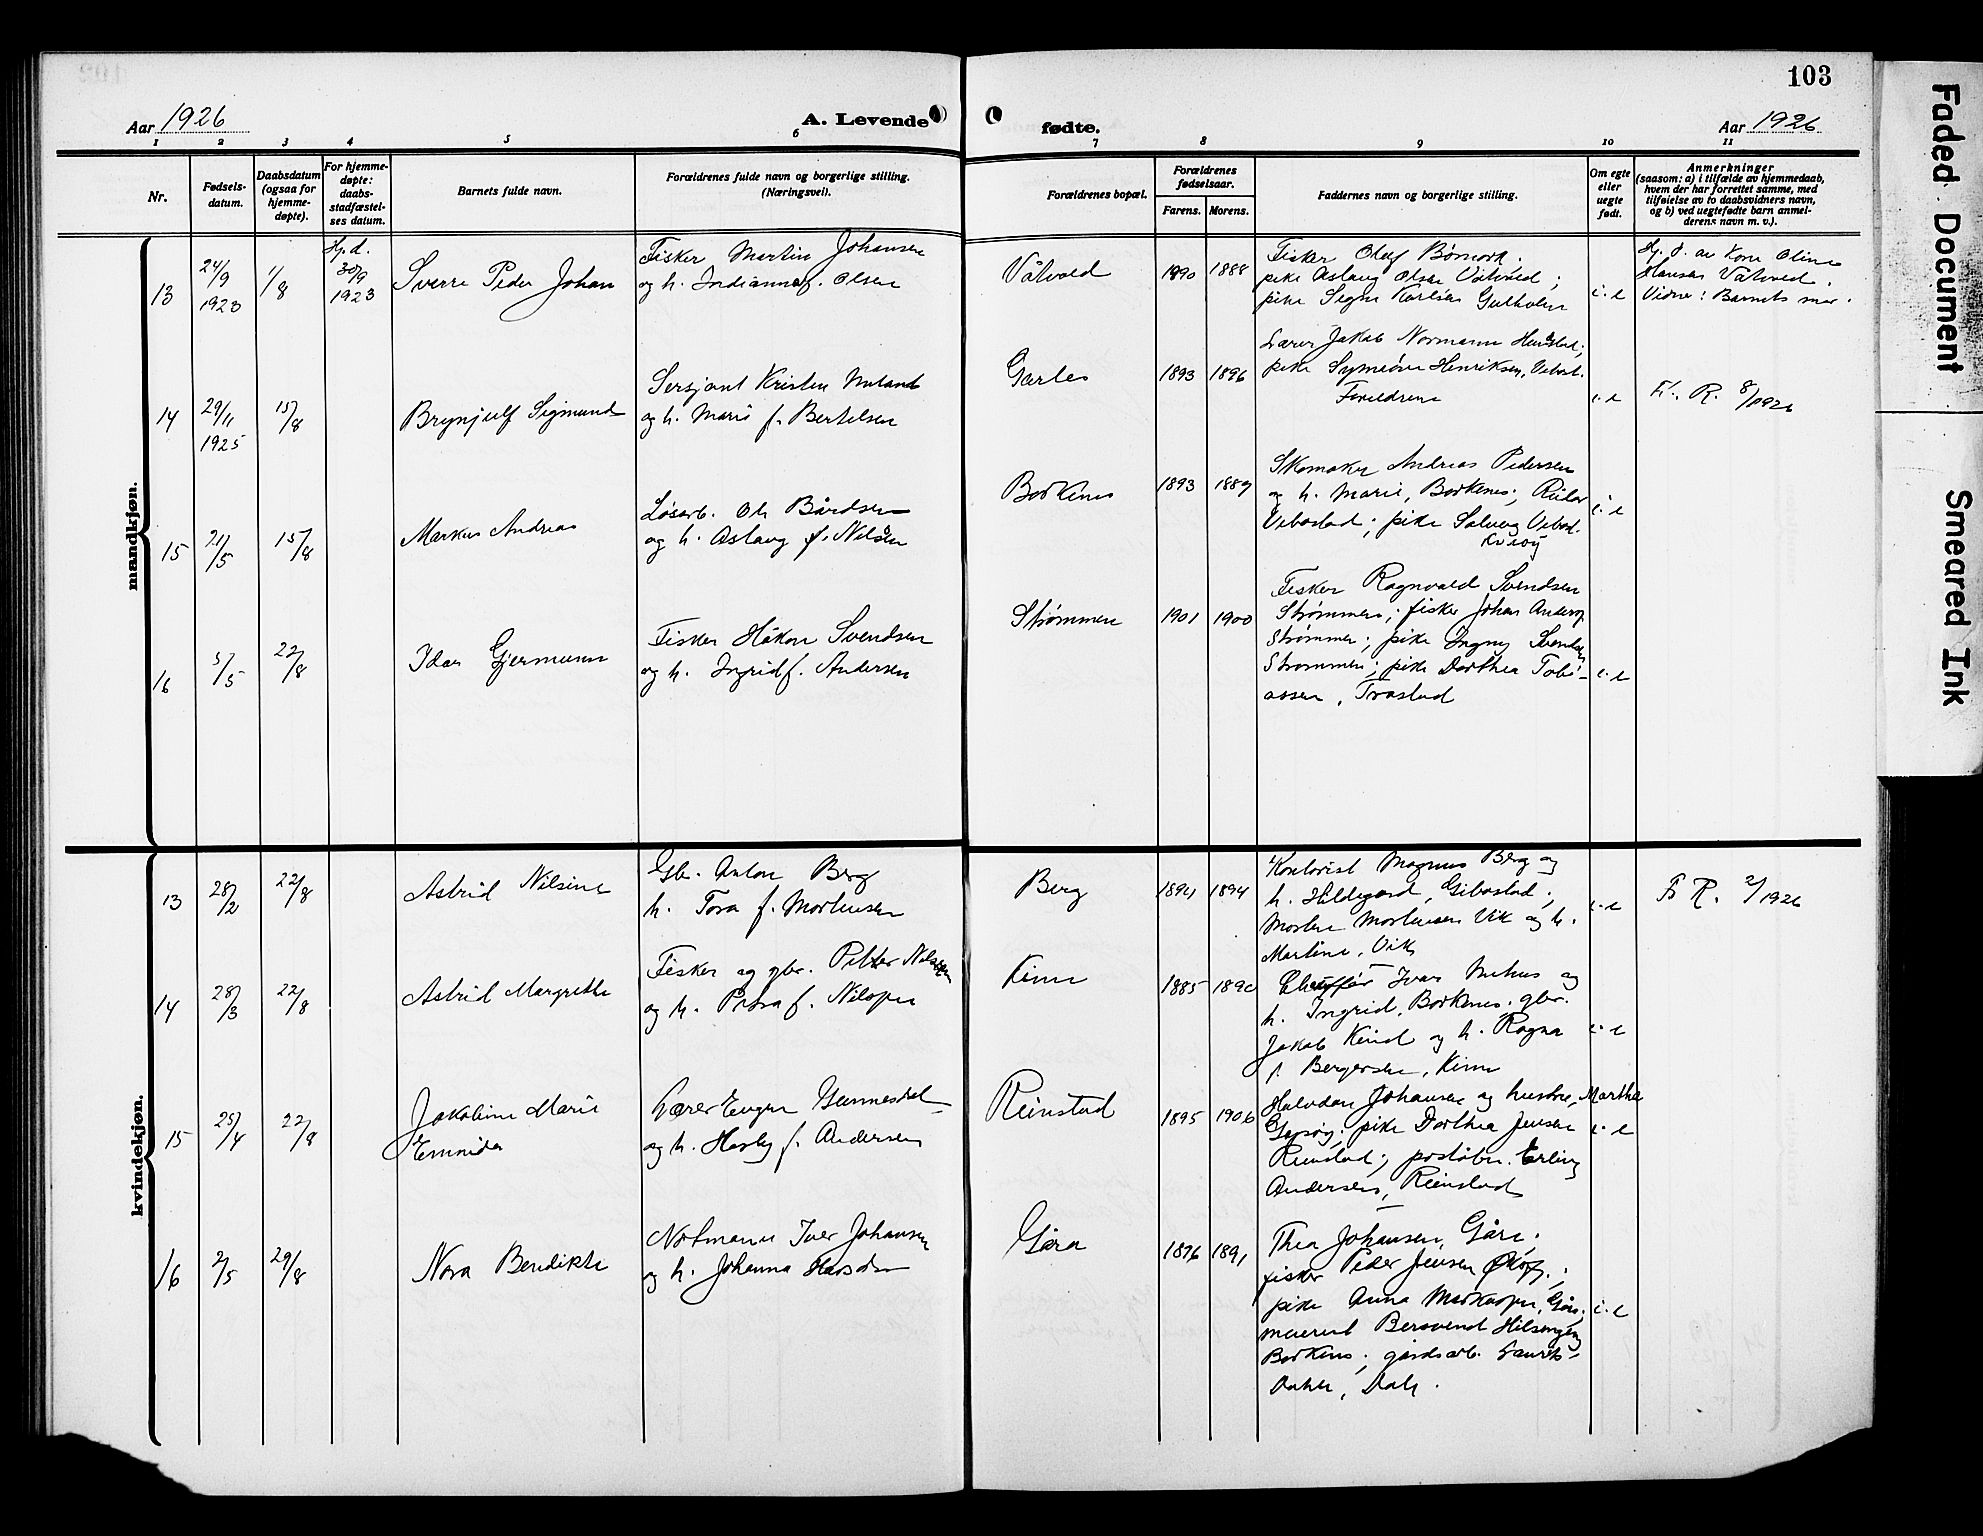 103
Aar 1926
A. Levende
fødte.
Aar 1926
1 2 3 4 5 6 7 8 9 10 11
Nr.
Fødsels-
datum.
Daabsdatum
(ogsaa for
hjemme-
døpte).
For hjemme-
døpte:
daabs-
stadfæstel-
ses datum.
Barnets fulde navn.
Forældrenes fulde navn og borgerlige stilling.
(Næringsvei).
Forældrenes bopæl.
Forældrenes
fødselsaar.
Farens. Morens.
Faddernes navn og borgerlige stilling.
Om egte
eller
uegte
født.
Anmerkninger
(saasom: a) i tilfælde av hjemmedaab,
hvem der har forrettet samme, med
tilføielse av to daabsvidners navn,
og b) ved uegtefødte barn anmel-
derens navn m. v.).
mandkjøn.
13
24/9
1923
1/8
Hj.d.
30/9
1923
Sverre Peder Johan
Fisker Martin Johansen
og h. Indianna f. Olsen
Våtvold
1890 1888
Fisker Olaf
pike Aslaug Olsen Våtvold;
pike Signe Karlsen
i. e
Hj. d. av Kone Oline
Hansen Våtvold.
Vidne: Barnets mor.
14
29/11
1925
15/8
Brynjulf Sigmund
Sersjant Kristen
og h. Marie f. Bertelsen
Garles
1893 1896
Lærer Jakob Normann
pike Synnøve Henriksen, Vebost.
Foreldrene
i. e
F. R. 8/1926
15
21/5
15/8
Markus Andreas
Løsarb. Ole Bårdsen
og h. Aslaug f. Nilsen
Borkenes
1893 1889
Skomaker Andreas Pedersen
og h. Marie, Borkenes;
Vebostad; pike Solveig Vebost.
Kveøy
i. e
16
5/5
22/8
Idar Gjermunn
Fisker Håkon Svendsen
og h. Ingrid f. Andersen
Strømmen
1901 1900
Fisker Ragnvald Svendsen
Strømmen; fisker Johan
Strømmen; pike Ingny Svendsen
Strømmen; pike Dorthea Tobi-
assen, Trastad
i. e
kvindekjøn.
13
28/2
22/8
Astrid Nilsine
Gbr. Anton Berg
h. Tora f. Mortensen
Berg
1894 1894
Kontorist Magnus Berg og
h. Hildegard, Gibostad;
Morten Mortensen Vik og h.
Martine, Vik
i. e
R. 2/1926
14
28/3
22/8
Astrid Margrethe
Fisker og gbr. Petter Nilssen
og h. f.
Kinn
1885 1890
Chauffør Ivar Nehus og
h. Ingrid, Borkenes; gbr.
Jakob og h. Ragna
f. Bergersen, Kinn
i. e
15
25/4
22/8
Jakobine Marie
Lærer Eugen
og h. f. Andersen
Reinstad
1895 1906
Halvdan Johansen og hustru, Martha
pike Dorthea Jensen
Reinstad; poståbn. Erling
Andersen, Reinstad
i. e
16
2/5
29/8
Nora Bendikte
Notmann Iver Johansen
og h. Johanna
Gåra
1876 1891
Thea Johansen, Gåra;
fisker Peder Jensen
pike Anna
meierist
Borkenes; gårdsarb.
Dale.
i. e
Faded Document
Smeared Ink